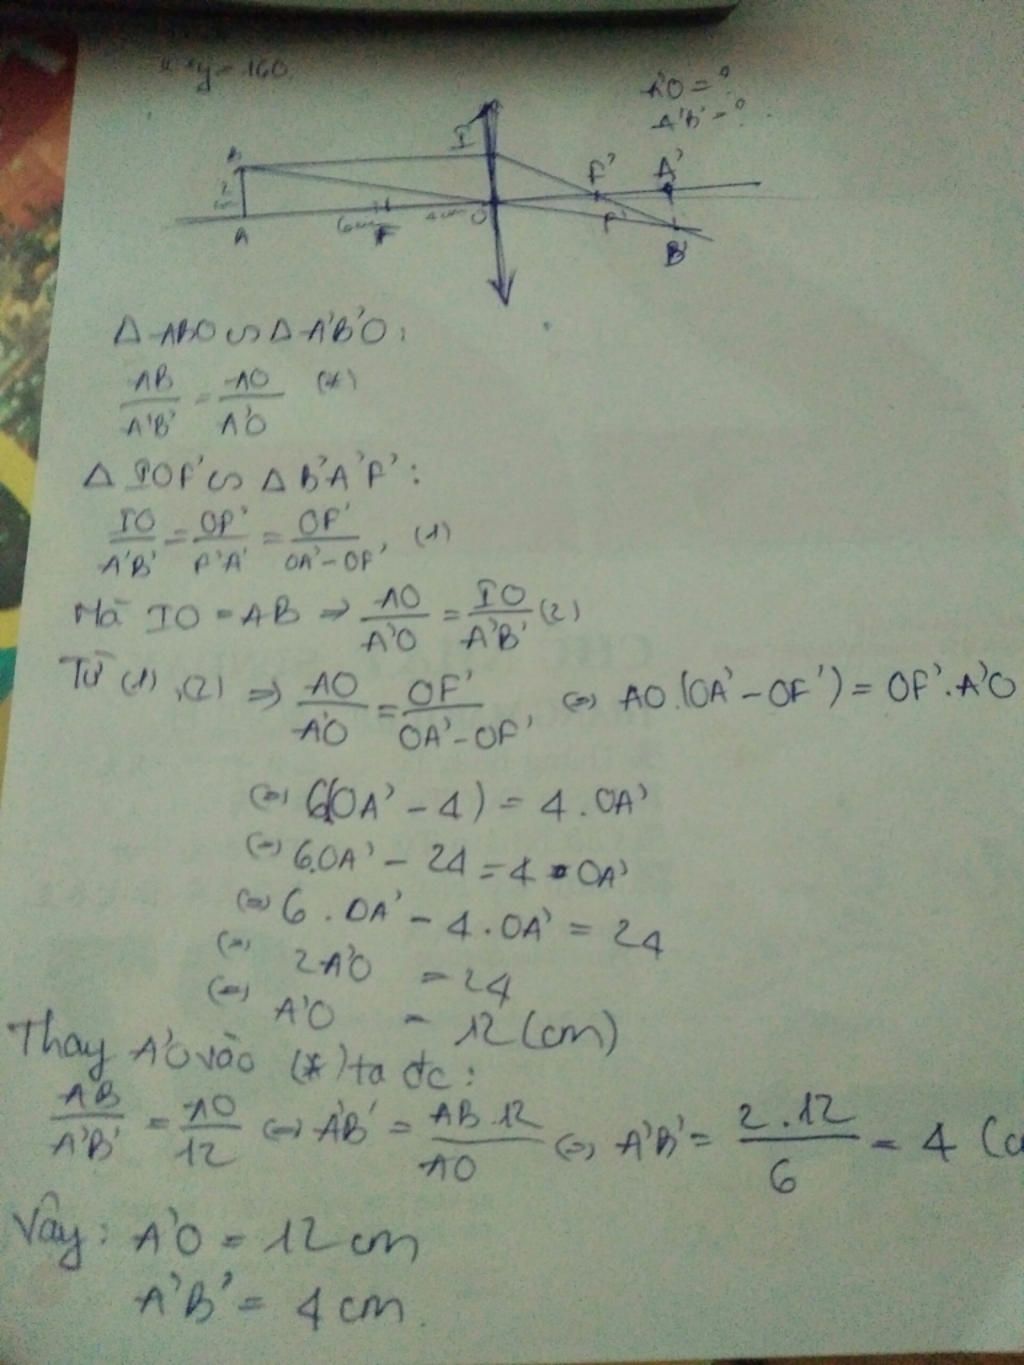 y = 160
A'O = ?
A'B' = ?
I
B
F'
A'
2 cm
6cm
4cm
O
A
F
F'
B'
Δ ABO ∽ Δ A'B'O :
AB/A'B' = AO/A'O (*)
Δ IOF' ∽ Δ B'A'F' :
IO/A'B' = OF'/F'A' = OF'/OA'-OF' (1)
Mà IO = AB => AO/A'O = IO/A'B' (2)
Từ (1), (2) => AO/A'O = OF'/OA'-OF' <=> AO.(OA' - OF') = OF'.A'O
<=> 6(OA' - 4) = 4.OA'
<=> 6.OA' - 24 = 4.OA'
<=> 6.OA' - 4.OA' = 24
<=> 2A'O = 24
<=> A'O = 12 (cm)
Thay A'O vào (*) ta đc :
AB/A'B' = AO/12 <=> A'B' = AB.12/AO <=> A'B' = 2.12/6 = 4
Vậy : A'O = 12 cm
A'B' = 4 cm.